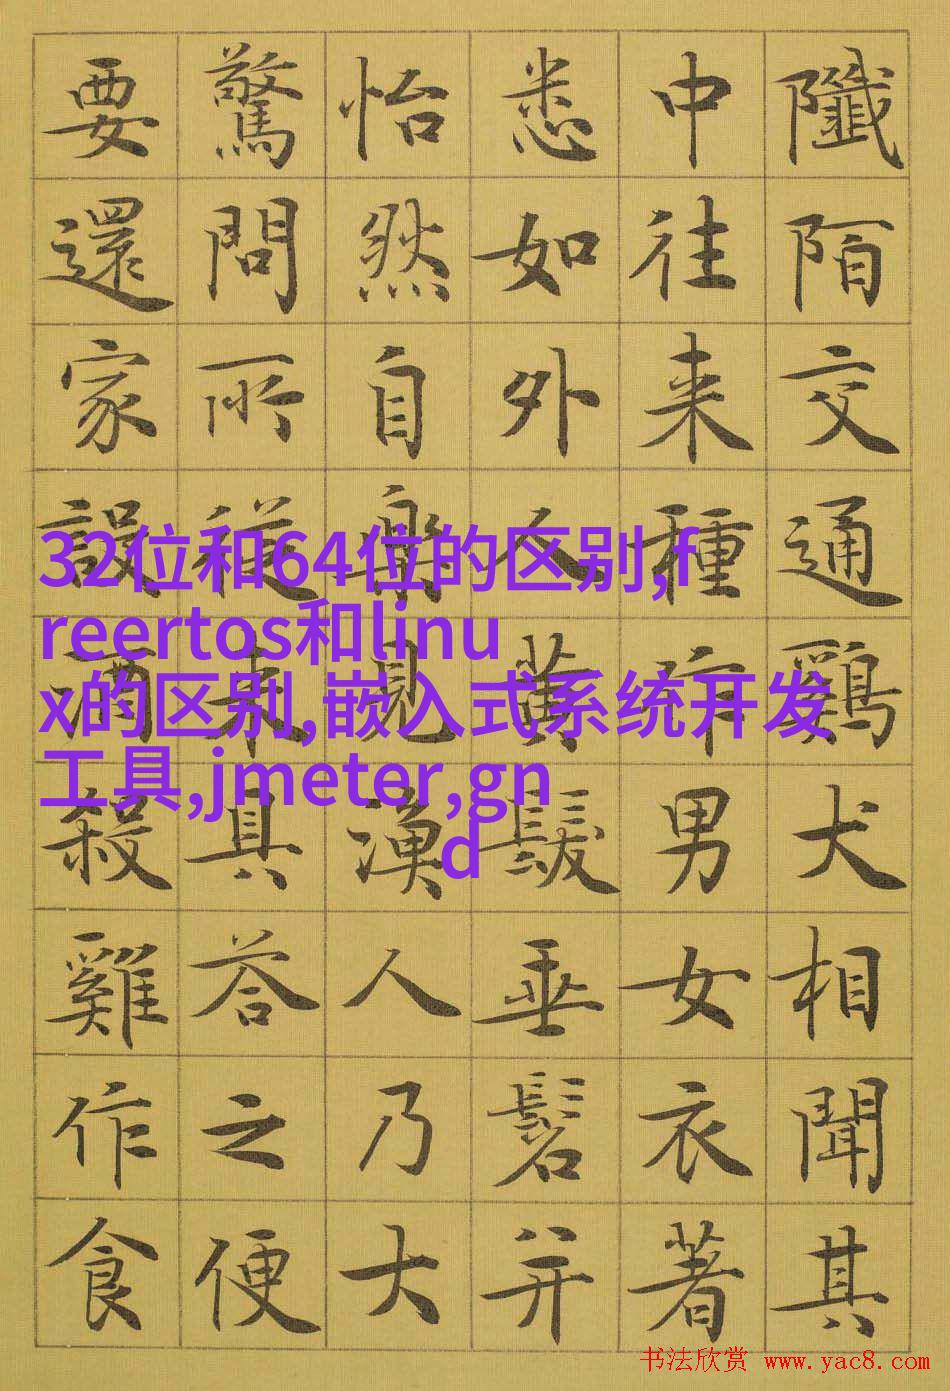 陌交通鷄犬相聞其
中往来種作男女衣著
悉如外人黄髮垂髫并
怡然自樂見漁人乃大
驚問所從来具答之便
要還家設酒殺雞作食
32位和64位的区别,f
reertos和linu
x的区别,嵌入式系统开发
工具,jmeter,gn
d
书法欣赏 www.yac8.com